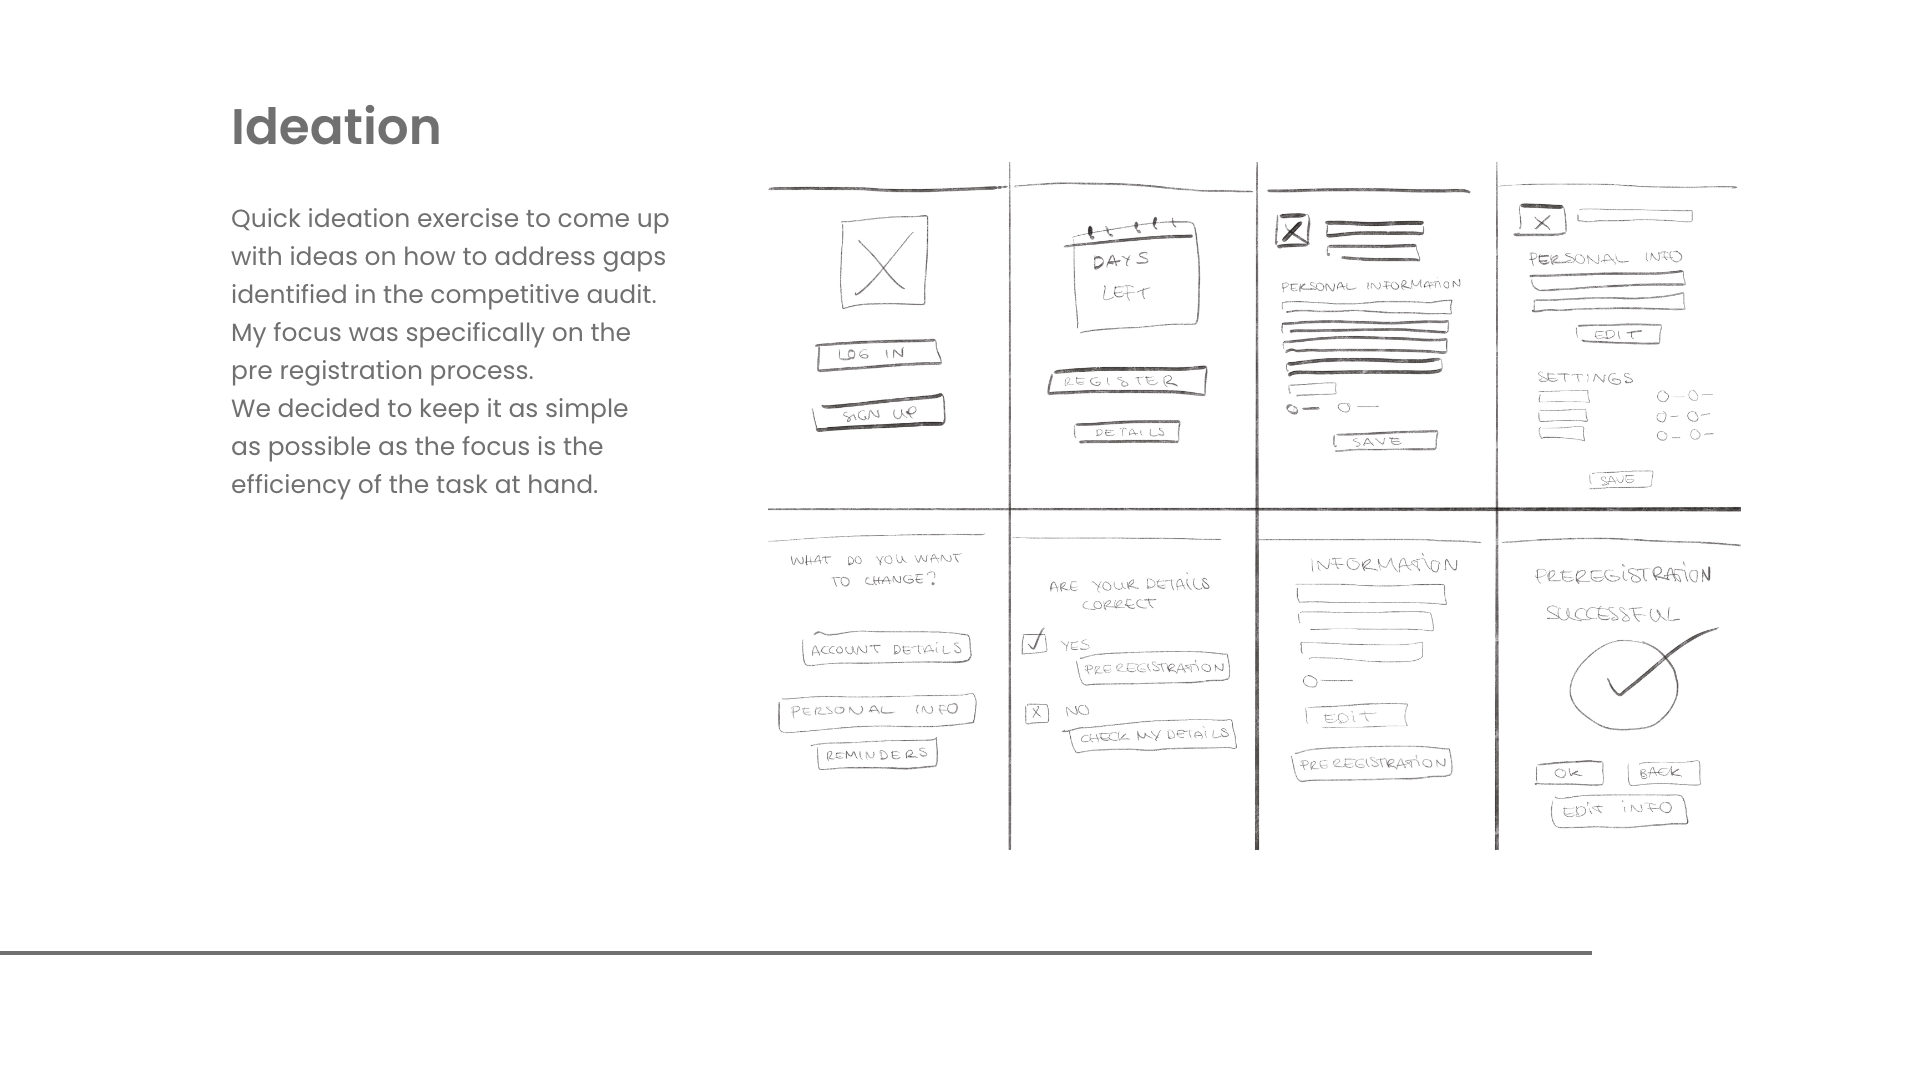 Ideation
Quick ideation exercise to come up
with ideas on how to address gaps
identified in the competitive audit.
My focus was specifically on the
pre registration process.
We decided to keep it as simple
as possible as the focus is the
efficiency of the task at hand.
LOG IN
SIGN UP
DAYS
LEFT
REGISTER
DETAILS
PERSONAL INFORMATION
SAVE
PERSONAL INFO
EDIT
SETTINGS
SAVE
WHAT DO YOU WANT
TO CHANGE?
ACCOUNT DETAILS
PERSONAL INFO
REMINDERS
ARE YOUR DETAILS
CORRECT
YES
PREREGISTRATION
NO
CHECK MY DETAILS
INFORMATION
EDIT
PREREGISTRATION
PREREGISTRATION
SUCCESSFUL
OK
BACK
EDIT INFO